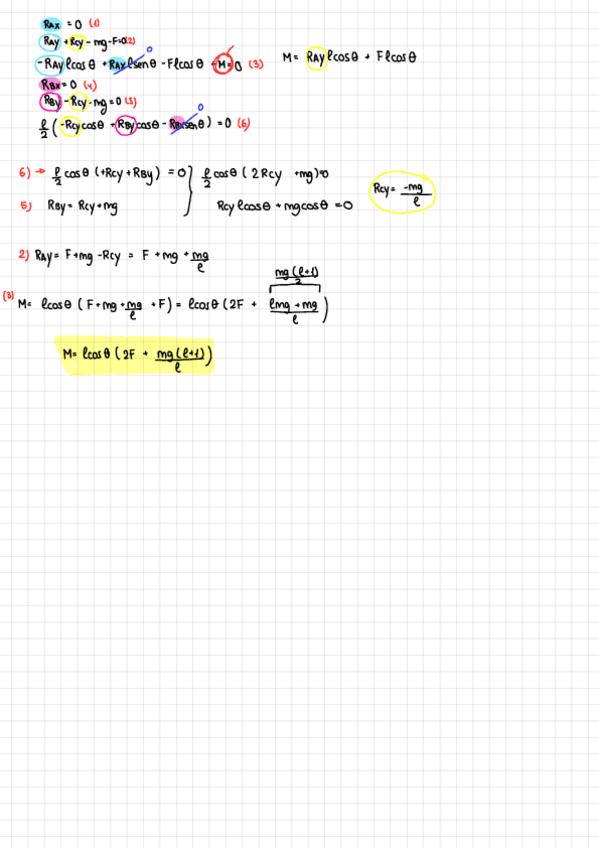 RAx = 0 (1)
RAy + Rcy - mg - F = 0 (2)
- RAy ℓcosθ + RAx ℓsenθ - Fℓcosθ + M = 0 (3)
0
M = RAy ℓcosθ + Fℓcosθ
RBx = 0 (4)
RBy - Rcy - mg = 0 (5)
ℓ/2 (-Rcy cosθ + RBy cosθ - RBx senθ) = 0 (6)
0
6) → ℓ/2 cosθ (+Rcy + RBy) = 0 } ℓ/2 cosθ (2Rcy + mg) = 0
5) RBy = Rcy + mg
Rcy ℓcosθ + mgcosθ = 0
Rcy = -mg/ℓ
2) RAy = F + mg - Rcy = F + mg + mg/ℓ
mg(ℓ+1)/2
(3) M = ℓcosθ (F + mg + mg/ℓ + F) = ℓcosθ (2F + ℓmg + mg/ℓ)
M = ℓcosθ (2F + mg(ℓ+1)/ℓ)